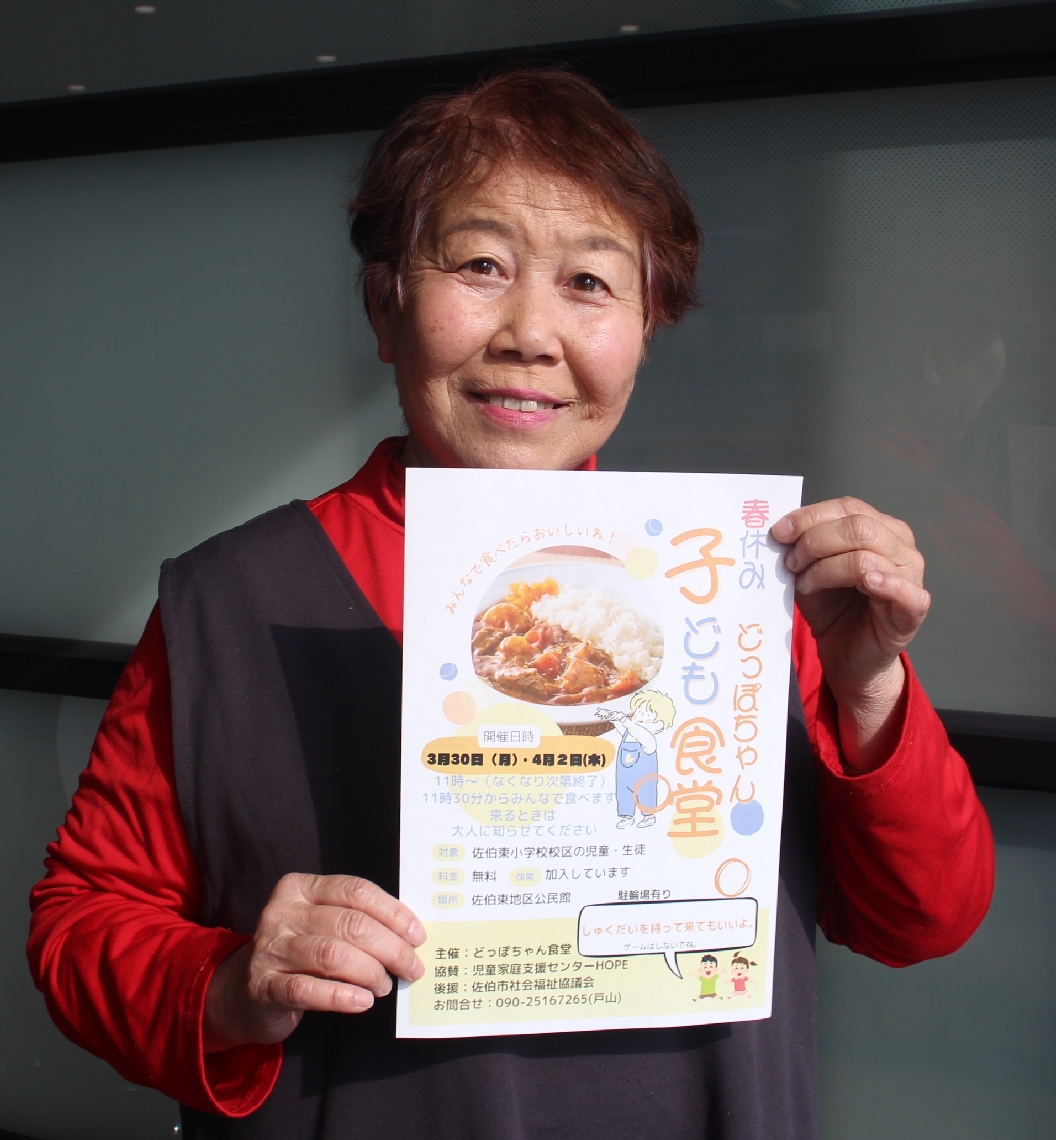 春休み
どっぽちゃん
子ども食堂
みんなで食べたらおいしいね！
開催日時
3月30日（月）・4月2日(木)
11時～（なくなり次第終了）
11時30分からみんなで食べます
来るときは
大人に知らせてください
対象 佐伯東小学校校区の児童・生徒
料金 無料 保険 加入しています
場所 佐伯東地区公民館 駐輪場有り
しゅくだいを持って来てもいいよ。
ゲームはしないでね。
主催：どっぽちゃん食堂
協賛：児童家庭支援センターHOPE
後援：佐伯市社会福祉協議会
お問合せ：090-25167265(戸山)